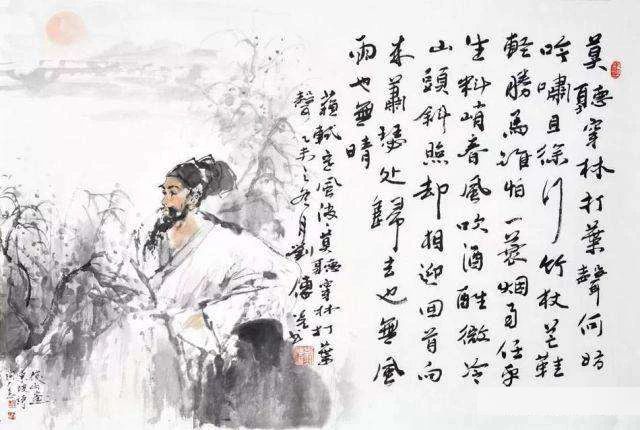 莫聽穿林打葉聲何妨
吟嘯且徐行竹杖芒鞋
輕勝馬誰怕一蓑烟雨任平
生料峭春風吹酒醒微冷
山頭斜照却相迎回首向
来蕭瑟处歸去也無風
雨也無晴
蘇軾定風波莫聽穿林打葉
聲乙未之冬月劉傳